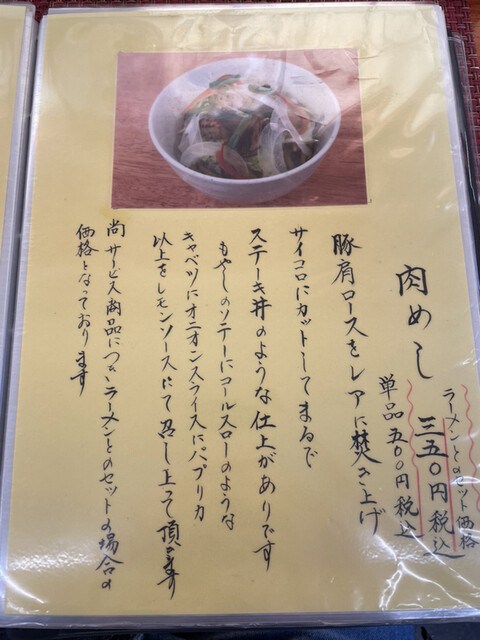 肉めし
ラーメンとのセット価格
三五〇円税込
単品五〇〇円税込
豚肩ロースをレアに焚き上げ
サイコロにカットしてまるで
ステーキ丼のような仕上がありです
もやしのソテーにコールスローのような
キャベツにオニオンスライスにパプリカ
以上をレモンソースにて召し上って頂きます
尚サービス商品につきラーメンとのセットの場合の
価格となっております